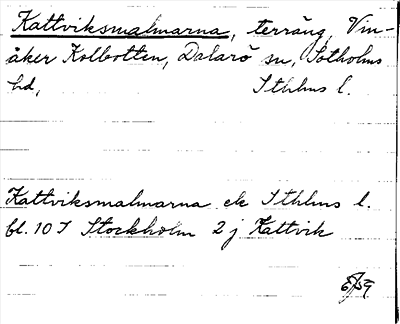 Kattviksmalmarna, terräng, Vin-
åker Kolbotten, Dalarö sn, Sotholms
hd, Sthlms l.
Kattviksmalmarna ek Sthlms l.
bl. 10 I Stockholm 2 j Kattvik